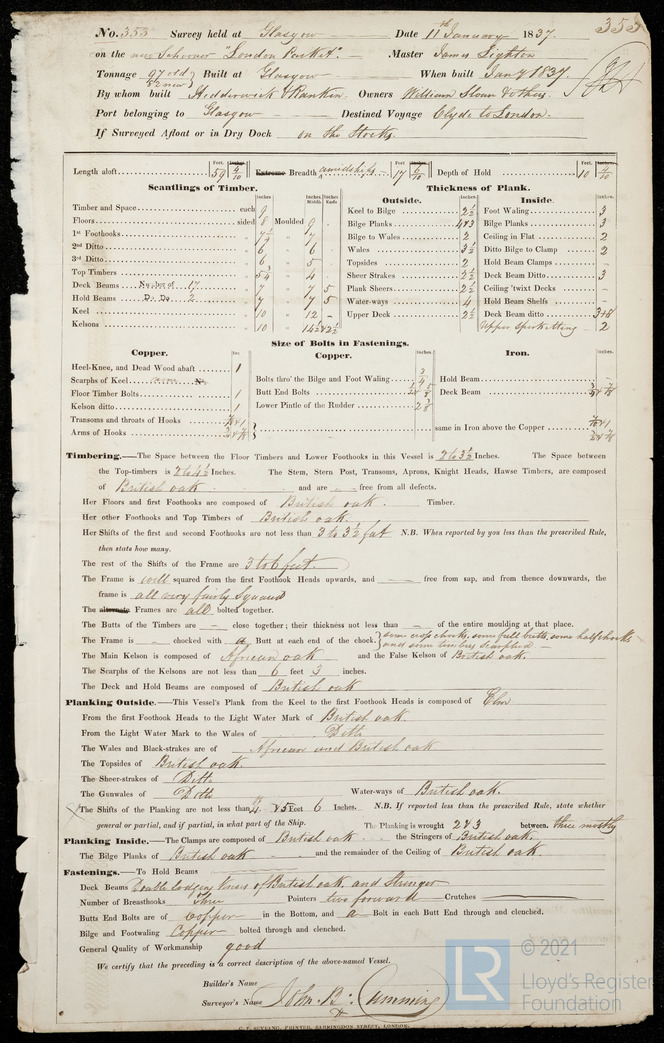 No. 353 Survey held at Glasgow Date 11th January 1837.
353
on the new Schooner "London Packet". Master James Lighton
Tonnage 97 old 82 new Built at Glasgow When built Jany 1837.
By whom built Hedderwick & Rankin. Owners William Sloan & others.
Port belonging to Glasgow Destined Voyage Clyde to London.
If Surveyed Afloat or in Dry Dock on the Stocks.
Length aloft Feet 59 Inches 4/10 Extreme Breadth amidships Feet 17 6/10 Depth of Hold Feet 10 4/10
Scantlings of Timber.
Inches Inches Middle Inches Ends
Timber and Space each 9
Floors sided 8 Moulded 9 -
1st Foothooks 7½ " 7
2nd Ditto 6 " 6
3rd Ditto 6 " 5
Top Timbers 5¼ " 4
Deck Beams Number of 17 7 " 7 5
Hold Beams Do. Do. 2 7 " 7 5
Keel 10 " 12 -
Kelsons 10
Thickness of Plank.
Outside. Inches
Keel to Bilge 2½
Bilge Planks 4&3
Bilge to Wales 2
Wales 3½
Topsides 2
Sheer Strakes 2½
Plank Sheers 2½
Water-ways 4
Upper Deck 2½
Inside. Inches
Foot Waling 3
Bilge Planks 3
Ceiling in Flat 2
Ditto Bilge to Clamp 2
Hold Beam Clamps -
Deck Beam Ditto 3
Ceiling 'twixt Decks -
Hold Beam Shelfs -
Deck Beam ditto 3&8
Upper Spirketting 2
Size of Bolts in Fastenings.
Copper.
Heel-Knee, and Dead Wood abaft 1
Scarphs of Keel No.
Floor Timber Bolts 1
Kelson ditto 1
Transoms and throats of Hooks 7/8 & 1
Arms of Hooks ¾ & 7/8
Copper. Inches
Bolts thro' the Bilge and Foot Waling ¾
Butt End Bolts
Lower Pintle of the Rudder
Iron. Inches
Hold Beam -
Deck Beam ¾ & 7/8
same in Iron above the Copper 7/8 & 1 ¾ & 7/8
Timbering.—The Space between the Floor Timbers and Lower Foothooks in this Vessel is 2 & 3½ Inches. The Space between
the Top-timbers is 2 & 4½ Inches. The Stem, Stern Post, Transoms, Aprons, Knight Heads, Hawse Timbers, are composed
of British oak and are - free from all defects.
Her Floors and first Foothooks are composed of British oak. Timber.
Her other Foothooks and Top Timbers of British oak.
Her Shifts of the first and second Foothooks are not less than 3 to 3½ feet N.B. When reported by you less than the prescribed Rule,
then state how many.
The rest of the Shifts of the Frame are 3 to 6 feet.
The Frame is well squared from the first Foothook Heads upwards, and — free from sap, and from thence downwards, the
frame is all very fairly squared
The alternate Frames are all bolted together.
The Butts of the Timbers are - close together; their thickness not less than - of the entire moulding at that place.
The Frame is - chocked with a Butt at each end of the chock. some cross chocks, some full butts, some half chocks
and some timbers scarphed -
The Main Kelson is composed of African oak and the False Kelson of British oak.
The Scarphs of the Kelsons are not less than 6 feet 3 inches.
The Deck and Hold Beams are composed of British oak
Planking Outside.—This Vessel's Plank from the Keel to the first Foothook Heads is composed of Elm
From the first Foothook Heads to the Light Water Mark of British oak
From the Light Water Mark to the Wales of Ditto
The Wales and Black-strakes are of African and British oak
The Topsides of British oak.
The Sheer-strakes of Ditto
The Gunwales of Ditto Water-ways of British oak.
The Shifts of the Planking are not less than 4 & 5 Feet 6 Inches. N.B. If reported less than the prescribed Rule, state whether
general or partial, and if partial, in what part of the Ship. The Planking is wrought 2 & 3 between. three mostly
Planking Inside.—The Clamps are composed of British oak the Stringers of British oak.
The Bilge Planks of British oak and the remainder of the Ceiling of British oak.
Fastenings.—To Hold Beams
Deck Beams Double lodging knees of British oak and Stringer
Number of Breasthooks Three Pointers two forward Crutches
Butts End Bolts are of Copper in the Bottom, and a Bolt in each Butt End through and clenched.
Bilge and Footwaling Copper bolted through and clenched.
General Quality of Workmanship good
We certify that the preceding is a correct description of the above-named Vessel.
Builder's Name
Surveyor's Name John B. Cumming
LR © 2021
Lloyd's Register
Foundation
PRINTER, BARRINGDON STREET, LONDON.